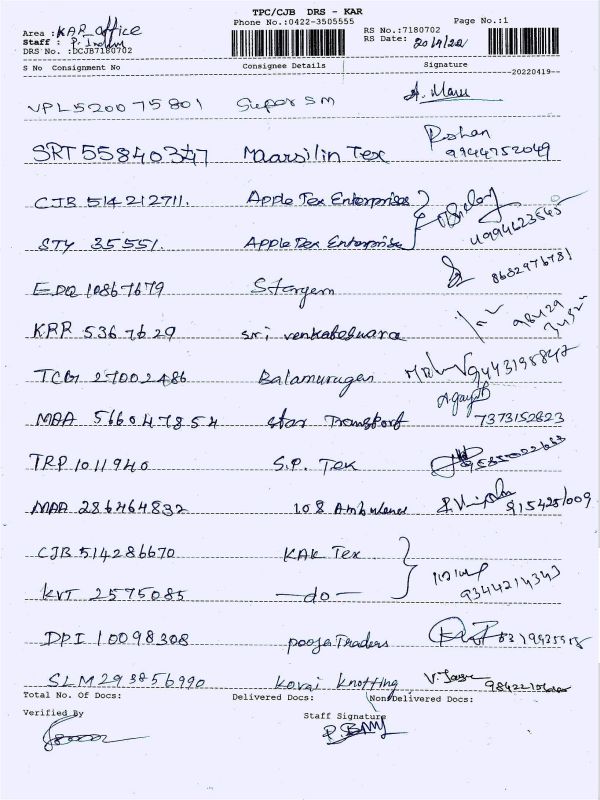 TPC/CJB DRS - KAR
Phone No.:0422-3505555 Page No.:1
Area : KAR office RS No.:7180702
Staff : P. RS Date: 20/4/22
DRS No.:DCJB7180702
S No Consignment No Consignee Details Signature
20220419
VPL520075801 Super sm A. Manu
SRT558403347 Maarsilin Tex Roshan 9944752049
CJB 514212711. Apple Tex Enterprises
STY 35551. Apple Tex Enterprise 4994623545
EDQ 10867679 Stargem 8682976781
KRR 5367629 sri venkateswara
TCG 27002486 Balamurugan 9443195847
MAA 566047854 star Transport 7373152823
TRP 1011940 S.P. Tex
MAA 286464832 108 Ambulance 9154251009
CJB 514286670 KAK Tex
KVT 2575085 —do— 9344214343
DPI 10098308 pooja Traders
SLM293856990 kovai knotting
Total No. Of Docs: Delivered Docs: Non Delivered Docs:
Verified By Staff Signature